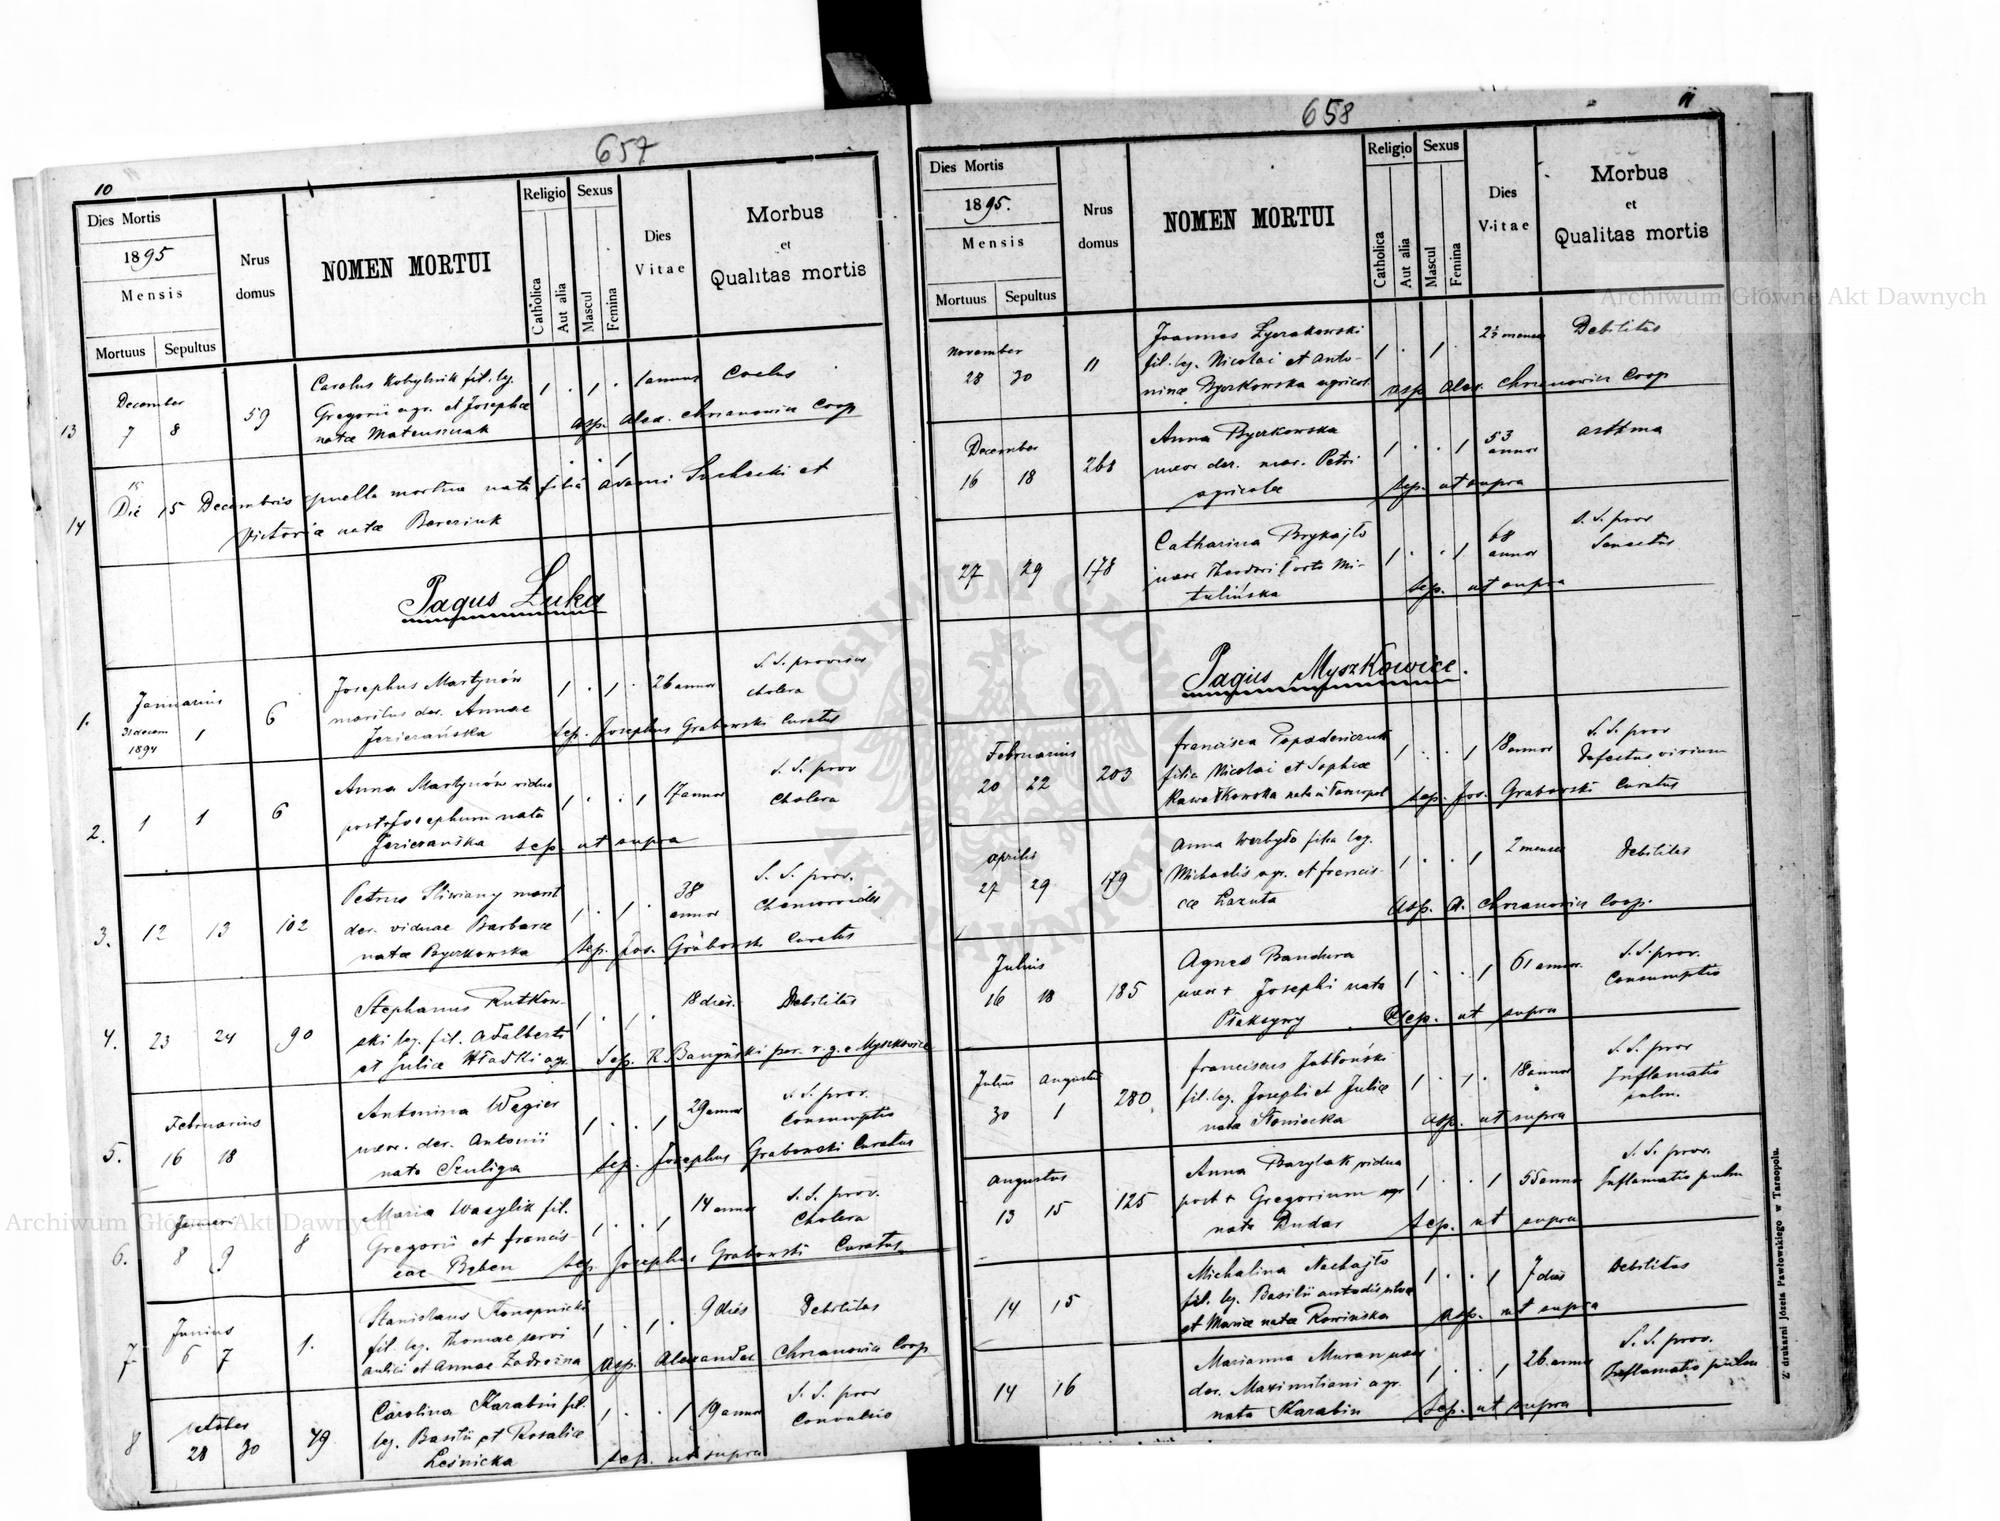 657
10
Dies Mortis
1895
Mensis
Mortuus Sepultus
Nrus domus
NOMEN MORTUI
Religio
Catholica
Aut alia
Sexus
Mascul
Femina
Dies Vitae
Morbus
et
Qualitas mortis
13
December
7 8
59
Carolus Kobylnik fil. leg.
Gregorii agr. et Josephae
natae Mateuszuk
1 . 1 .
1 annus
asp. Alex. Chrzanowicz Coop
14
15
Die 15 Decembris puella mortua nata filia Adami Suchecki et
Victoria nata Bereziuk
Pagus Luka
1.
Januarius
31 decem 1
1894
6
Josephus Martynów
maritus der. Annae
Jezierańska
1 . 1 .
26 annor
S. S. provisus
cholera
Sep. Josephus Grabowski Curatus
2.
1 1
6
Anna Martynów vidua
post Josephum nata
Jezierańska
1 . . 1
17 annor
S. S. prov
Cholera
sep. ut supra
3.
12 13
102
Petrus Sliwiany
der. viduae Barbarae
natae Byczkowska
1 . 1 .
38
annor
S. S. prov.
Sep. Jos. Grabowski Curatus
4.
23 24
90
Stephanus Rutkow-
ski leg. fil. Adalberti
et Juliae Hładki agr.
1 . 1 .
18 dies.
Debilitas
Sep. R. par. r. g. e Myszkowice
5.
Februarius
16 18
Antonina Węgier
uxor. der. Antonii
nata Szuliga
1 . . 1
29 annor
S. S. prov.
Consumptio
Sep. Josephus Grabowski Curatus
6.
8 9
8
Maria Wasylik fil.
Gregorii et Francis-
cae Byben
1 . . 1
14 annor
S. S. prov.
Cholera
Sep. Josephus Grabowski Curatus
7
Junius
6 7
1.
Stanislaus Konopnicki
fil. leg. Thomae servi
aulici et Annae Zadrożna
1 . 1 .
9 dies
Debilitas
asp. Alexander Chrzanowicz Coop
8
october
28 30
79
Carolina Karabin fil.
leg. Basilii et Rosaliae
Leśnicka
1 . . 1
19 annor
S. S. prov
Convulsio
sep. ut supra
658
11
Dies Mortis
1895.
Mensis
Mortuus Sepultus
Nrus domus
NOMEN MORTUI
Religio
Catholica
Aut alia
Sexus
Mascul
Femina
Dies Vitae
Morbus
et
Qualitas mortis
November
28 30
11
Joannes Łyczakowski
fil. leg. Nicolai et Anto-
ninae Byczkowska agricol.
1 . 1 .
2½ menses
Debilitas
asp Alex. Chrzanowicz Coop
December
16 18
268
Anna Byczkowska
uxor der. mar. Petri
agricolae
1 . . 1
53
annor
asthma
Sep. ut supra
27 29
178
Catharina Brykajło
uxor Theodori orta Mi-
tulińska
1 . . 1
68
annor
S. S. prov
Senectus
Sep. ut supra
Pagus Myszkowice.
Februarius
20 22
203
Francisca Papadeniczuk
filia Nicolai et Sophiae
1 . . 1
18 annor
S. S. prov
Defectus virium
Sep. Jos. Grabowski Curatus
aprilis
27 29
179
Anna Werbyło filia leg.
Michaelis agr. et Francis-
cae Łazuta
1 . . 1
2 menses
Debilitas
Asp. A. Chrzanowicz Coop.
Julius
16 18
185
Agnes Bandura
uxor + Josephi nata
Płaksywy
1 . . 1
61 annor.
S. S. prov.
Consumptio
Sep. ut supra
Julius Augustus
30 1
280
Franciscus Jabłoński
fil. leg. Josephi et Juliae
nata Słoniecka
1 . 1 .
18 annor
S. S. prov
Inflamatio
pulm.
asp. ut supra
augustus
13 15
125
Anna Barylak vidua
post + Gregorium agr
nata Dudar
1 . . 1
55 annor
S. S. prov.
Inflamatio pulm
Sep. ut supra
14 15
Michalina Nachajło
fil. leg. Basilii
et Mariae natae Rowińska
1 . . 1
7 dies
Debilitas
asp. ut supra
14 16
Marianna Muran uxor
der. Maximiliani agr.
nata Karabin
1 . . 1
26 annor
S. S. prov.
Inflamatio pulm
Sep. ut supra
Z drukarni Józefa Pawłowskiego w Tarnopolu.
Archiwum Główne Akt Dawnych
Archiwum Główne Akt Dawnych
ARCHIWUM GŁÓWNE AKT DAWNYCH